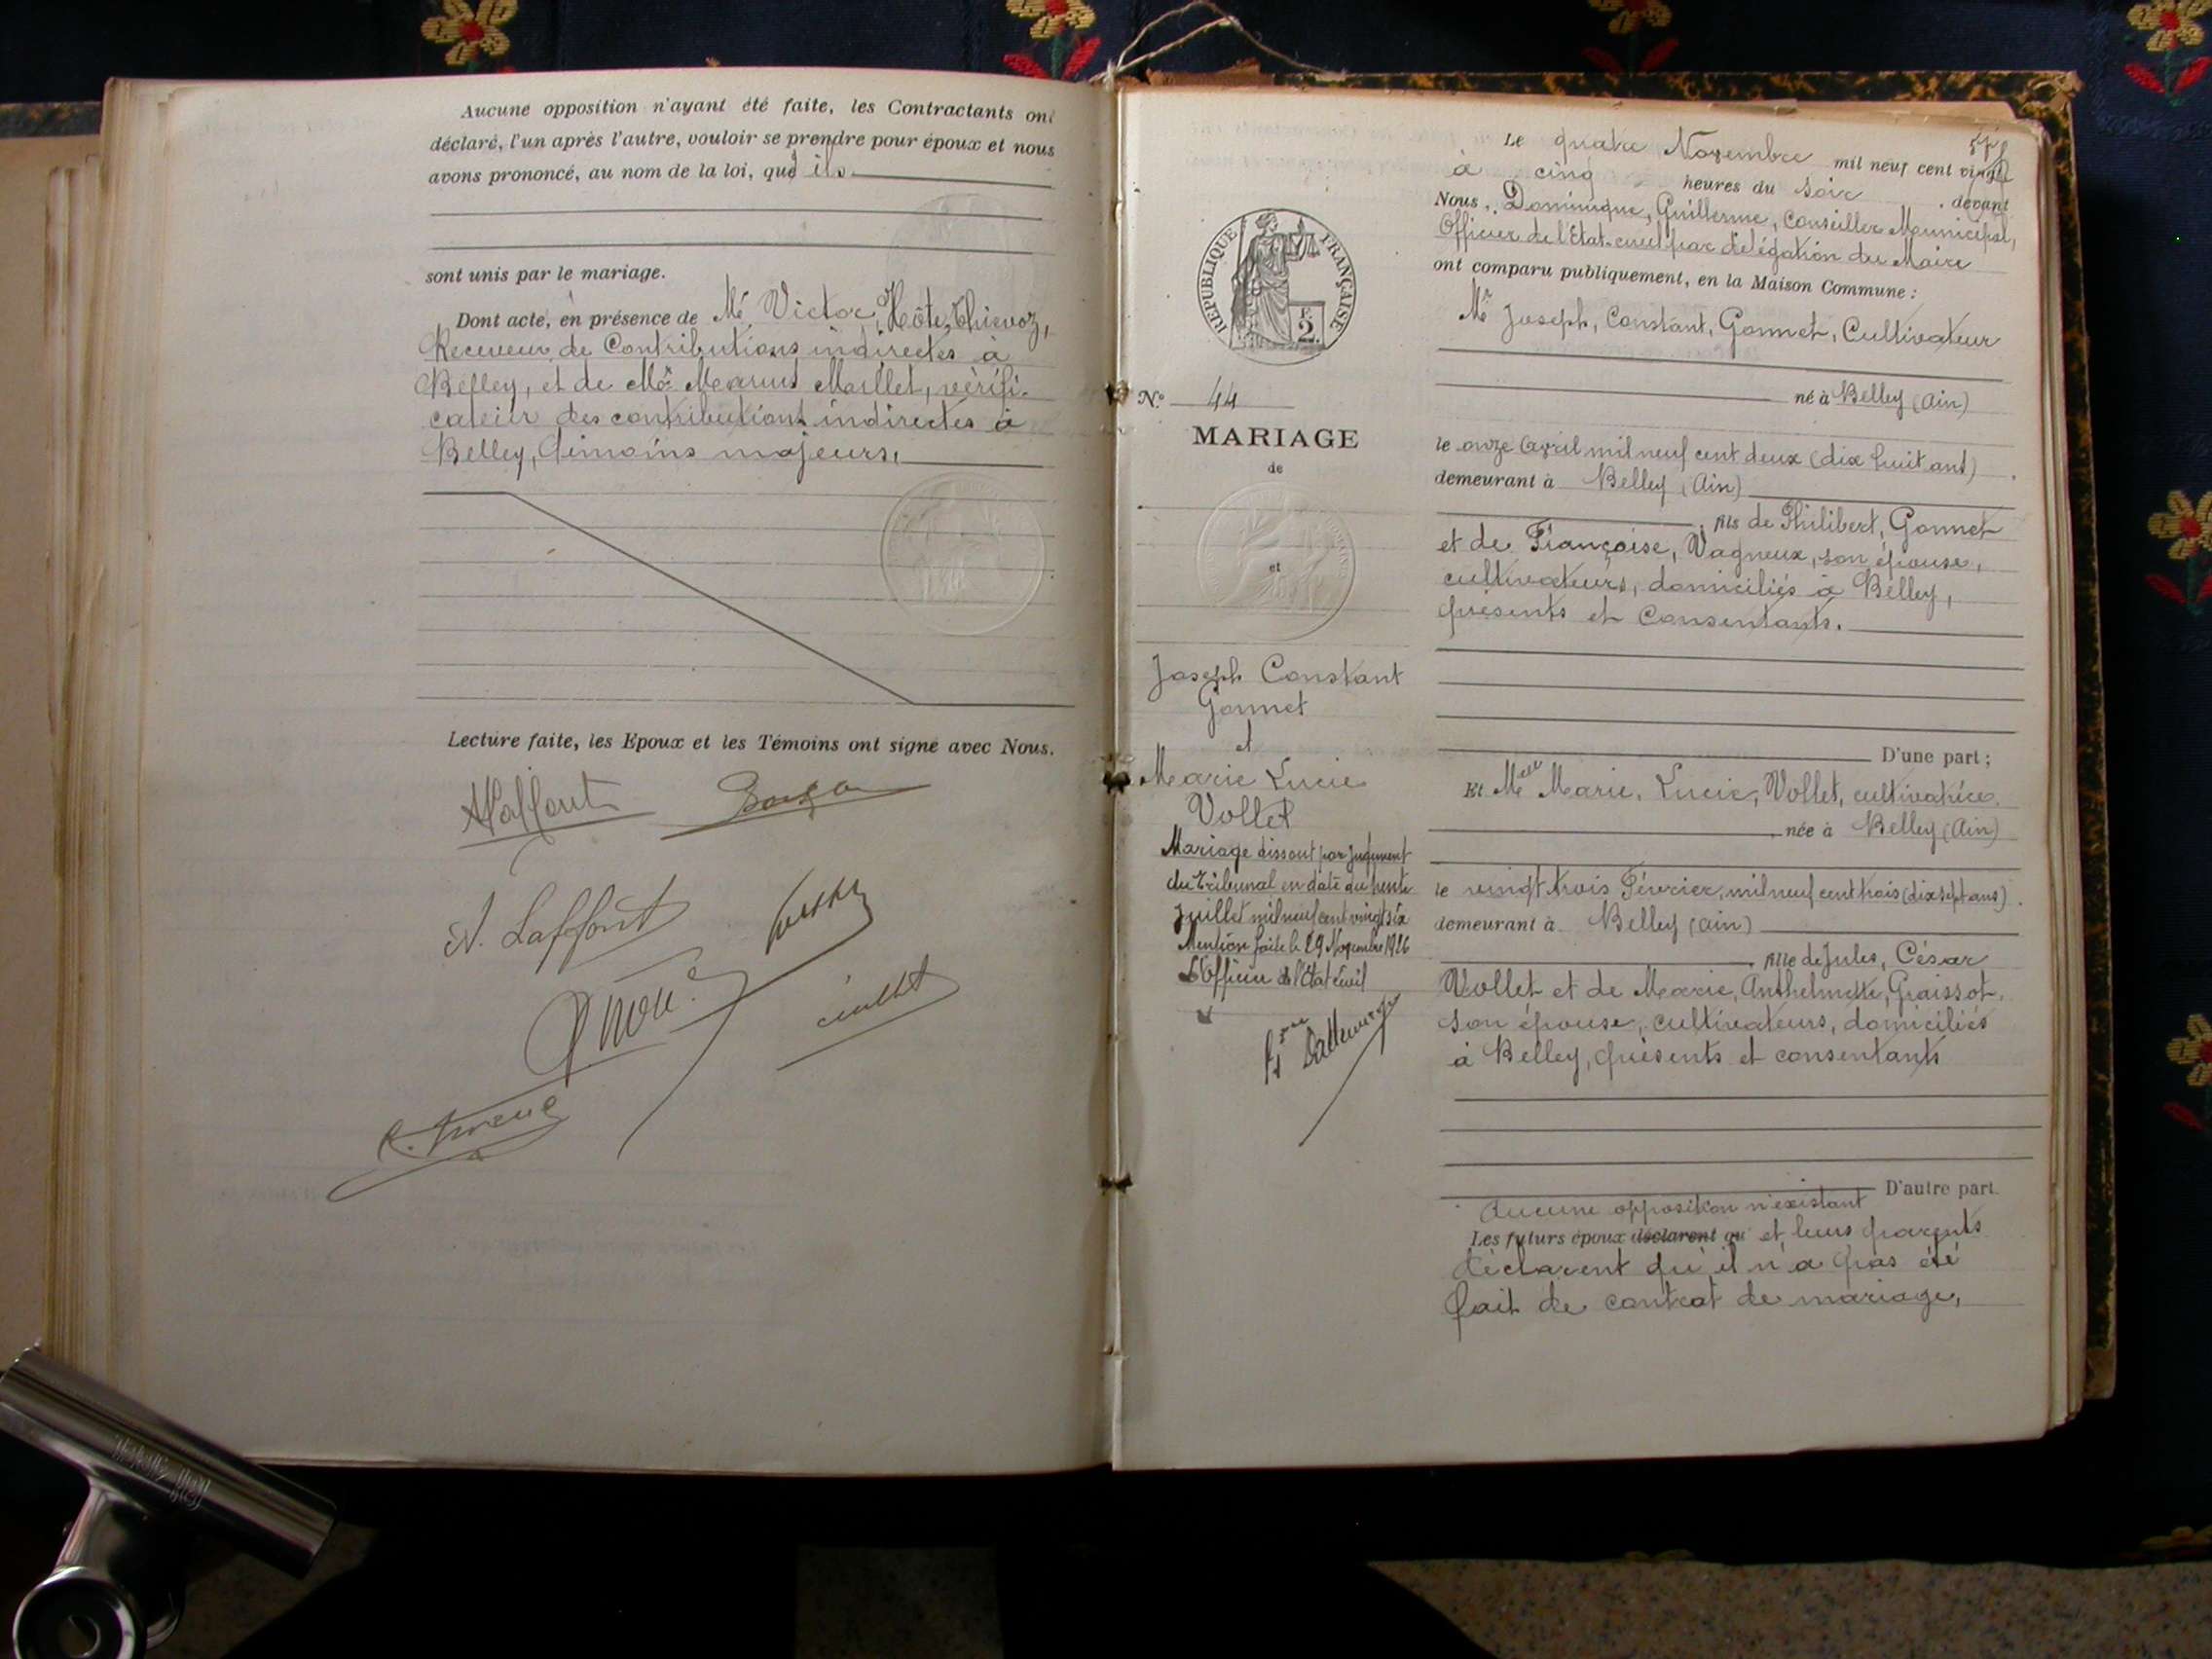 Aucune opposition n'ayant été faite, les Contractants ont
déclaré, l'un après l'autre, vouloir se prendre pour époux et nous
avons prononcé, au nom de la loi, qu'ils
sont unis par le mariage.
Dont acte, en présence de Mr Victor, Hôte, Thievoz,
Receveur de Contributions indirectes à
Belley, et de Mr Marius Maillet, vérifi-
cateur des contributions indirectes à
Belley, témoins majeurs.
Lecture faite, les Epoux et les Témoins ont signé avec Nous.
N. Laffont
Le quatre Novembre mil neuf cent vingt
à cinq heures du soir, devant
Nous, Dominique, Guillerme, Conseiller Municipal,
Officier de l'Etat-civil par délégation du Maire
ont comparu publiquement, en la Maison Commune :
Mr Joseph, Constant, Gonnet, Cultivateur
né à Belley (Ain)
le onze Avril mil neuf cent deux (dix huit ans)
demeurant à Belley (Ain)
fils de Philibert, Gonnet
et de Françoise, Vagneux, son épouse,
cultivateurs, domiciliés à Belley,
présents et Consentants.
D'une part ;
Et Melle Marie, Lucie, Vollet, cultivatrice,
née à Belley (Ain)
le vingt trois Février, mil neuf cent trois (dix sept ans)
demeurant à Belley (Ain)
fille de Jules, César
Vollet et de Marie, Anthelmette, Graissot,
son épouse, cultivateurs, domiciliés
à Belley, présents et consentants
D'autre part.
Aucune opposition n'existant
Les futurs époux déclarent qu' et leurs parents
déclarent qu'il n'a pas été
fait de contrat de mariage,
RÉPUBLIQUE FRANÇAISE
2
N° 44
MARIAGE
de
et
Joseph Constant
Gonnet
et
Marie Lucie
Vollet
Mariage dissout par jugement
du Tribunal en date du trente
Juillet mil neuf cent vingt six
Mention faite le 29 Novembre 1926
L'Officier de l'Etat Civil